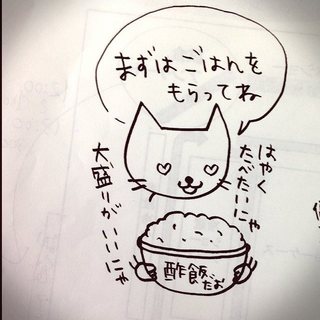 まずはごはんを
もらってね
はやく
たべたいにゃ
大盛りがいいにゃ
酢飯だお